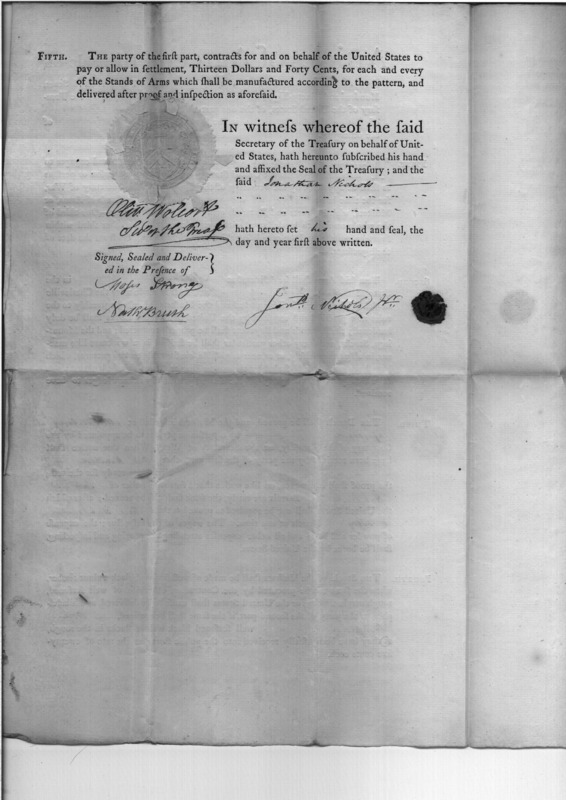 FIFTH. THE party of the firſt part, contracts for and on behalf of the United States to
pay or allow in ſettlement, Thirteen Dollars and Forty Cents, for each and every
of the Stands of Arms which ſhall be manufactured according to the pattern, and
delivered after proof and inſpection as aforeſaid.
IN witneſs whereof the ſaid
Secretary of the Treaſury on behalf of Unit-
ed States, hath hereunto ſubſcribed his hand
and affixed the Seal of the Treaſury; and the
ſaid Jonathan Nichols
hath hereto ſet his hand and ſeal, the
day and year firſt above written.
Olivr Wolcott
Secy of the Treasy
Signed, Sealed and Deliver-
ed in the Preſence of
Moses Strong
Nath Brush
Jonth. Nichols Jr.